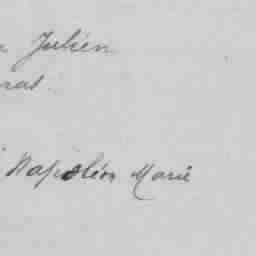 Julien
Napoléon Marie